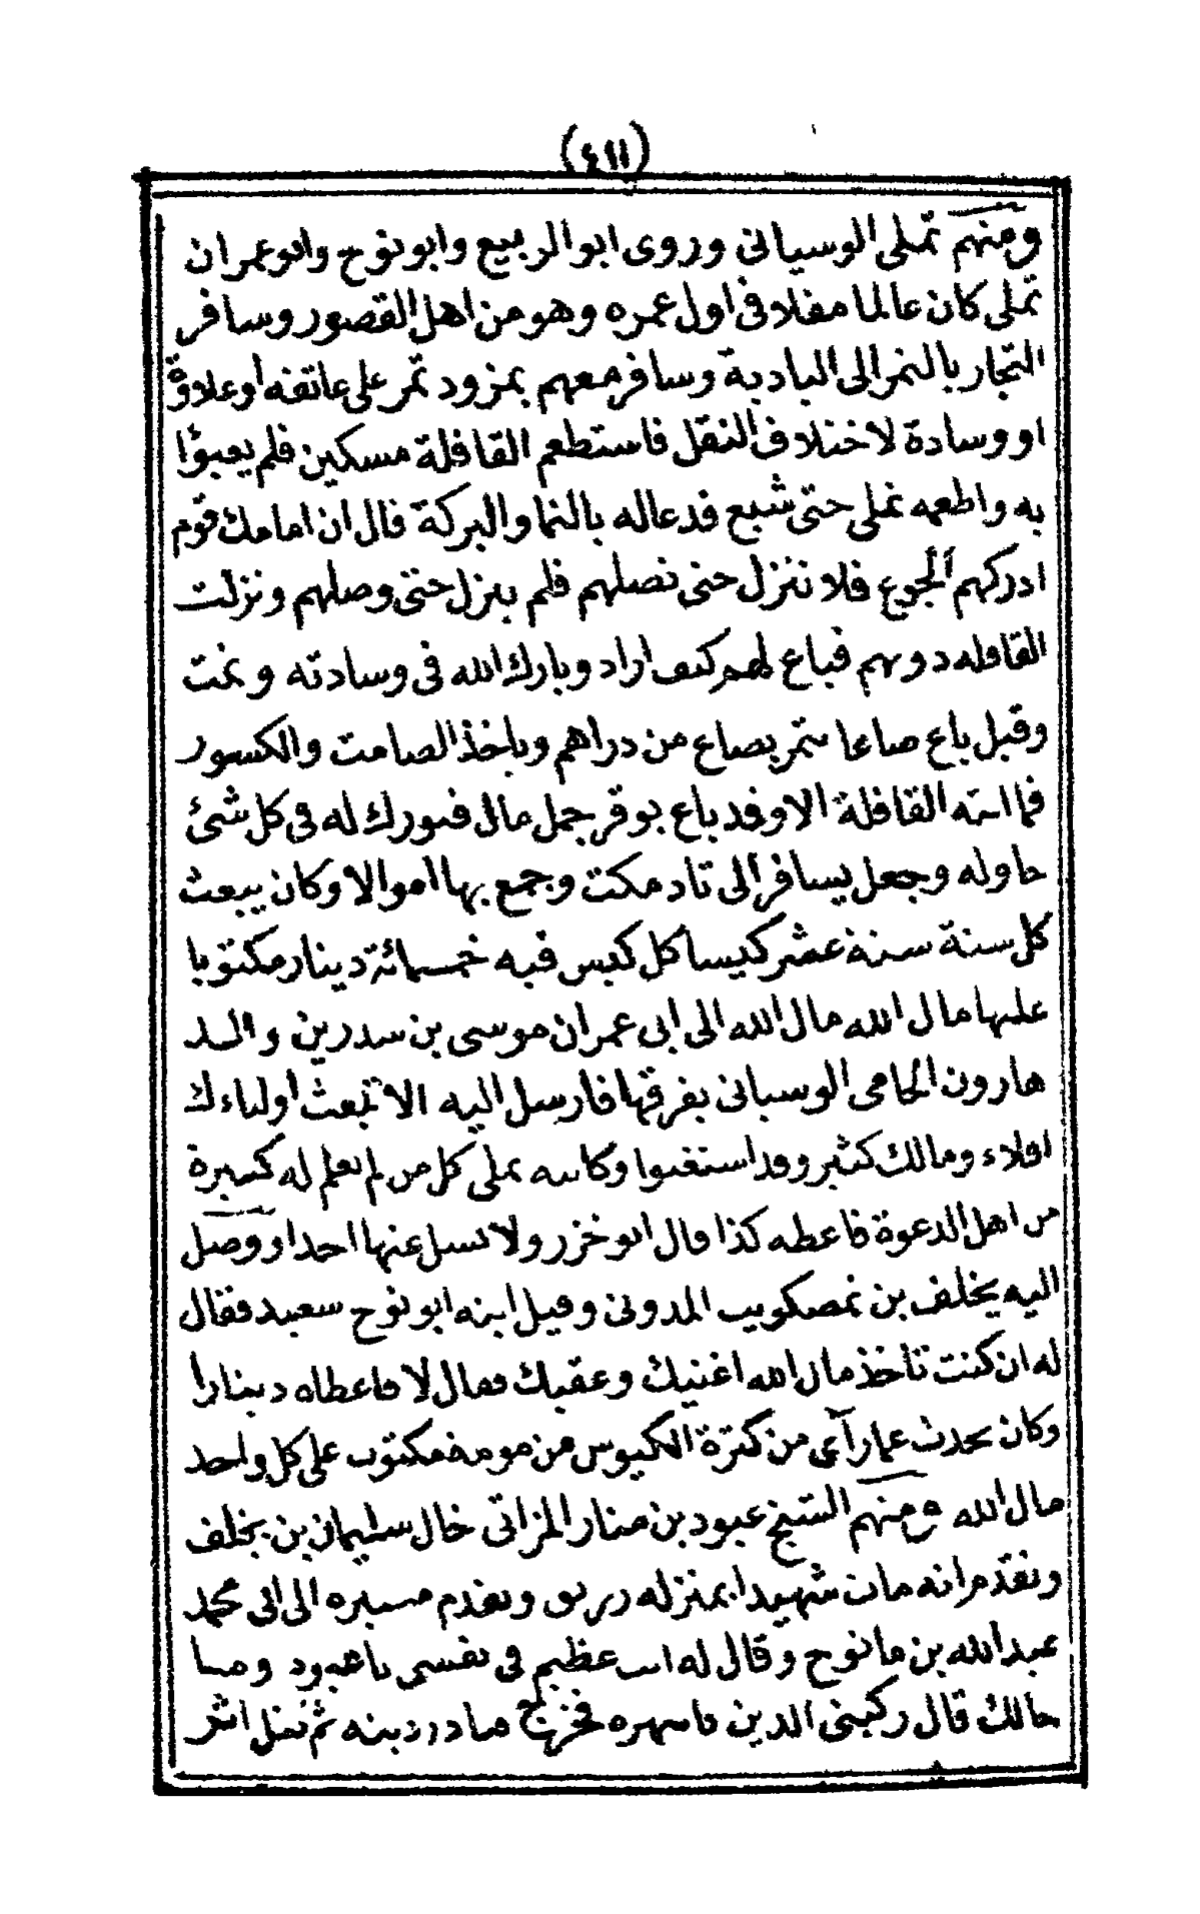 (٤١١)
ومنهم تملى الوسيانى وروى ابو الربيع وابو نوح وابو عمران
تملى كان عالما مقلا فى اول عمره وهو من اهل القصور وسافر
التجار بالتمر الى البادية وسافر معهم بمزود تمر على عاتقه او علاوة
او وسادة لاختلاف النقل فاستطعم القافلة مسكين فلم يعبؤا
به واطعمه تملى حتى شبع فدعا له بالنما والبركة قال ان امامك قوم
ادركهم الجوع فلا تنزل حتى تصلهم فلم ينزل حتى وصلهم ونزلت
القافله دونهم فباع لهم كيف اراد وبارك الله فى وسادته ونمت
وقيل باع صاعا بتمر بصاع من دراهم وياخذ الصامت والكسور
فما اتته القافلة الا وقد باع بوقر جمل مال فبورك له فى كل شئ
حاوله وجعل يسافر الى تادمكت وجمع بها اموالا وكان يبعث
كل سنة ستة عشر كيسا كل كيس فيه خمسمائة دينار مكتوبا
عليها مال الله مال الله الى ابى عمران موسى بن سدرين والد
هارون الحامى الوسيانى يفرقها فارسل اليه الا تبعث اولياءك
اقلاء ومالك كثير وقد استغنوا وكاتبه تملى كل من لم تعلم له كبيرة
من اهل الدعوة فاعطه كذا قال ابو خزر ولا تسل عنها احدا ووصل
اليه يخلف بن تمصكويب المدونى وقيل ابنه ابو نوح سعيد فقال
له ان كنت تاخذ مال الله اغنيك وعقبك فقال لا فاعطاه دينارا
وكان يحدث عما رآى من كثرة الكيوس من مكتوب على كل واحد
مال الله ومنهم الشيخ عبود بن منار المزاتى خال سليمان بن يخلف
وتقدم انه مات شهيدا بمنزله وتقدم مسيره الى ابى محمد
عبد الله بن مانوح وقال له انت عظيم فى نفسى يا عبود وما
حالك قال ركبنى الدين فخرج ثم تمثل اثر